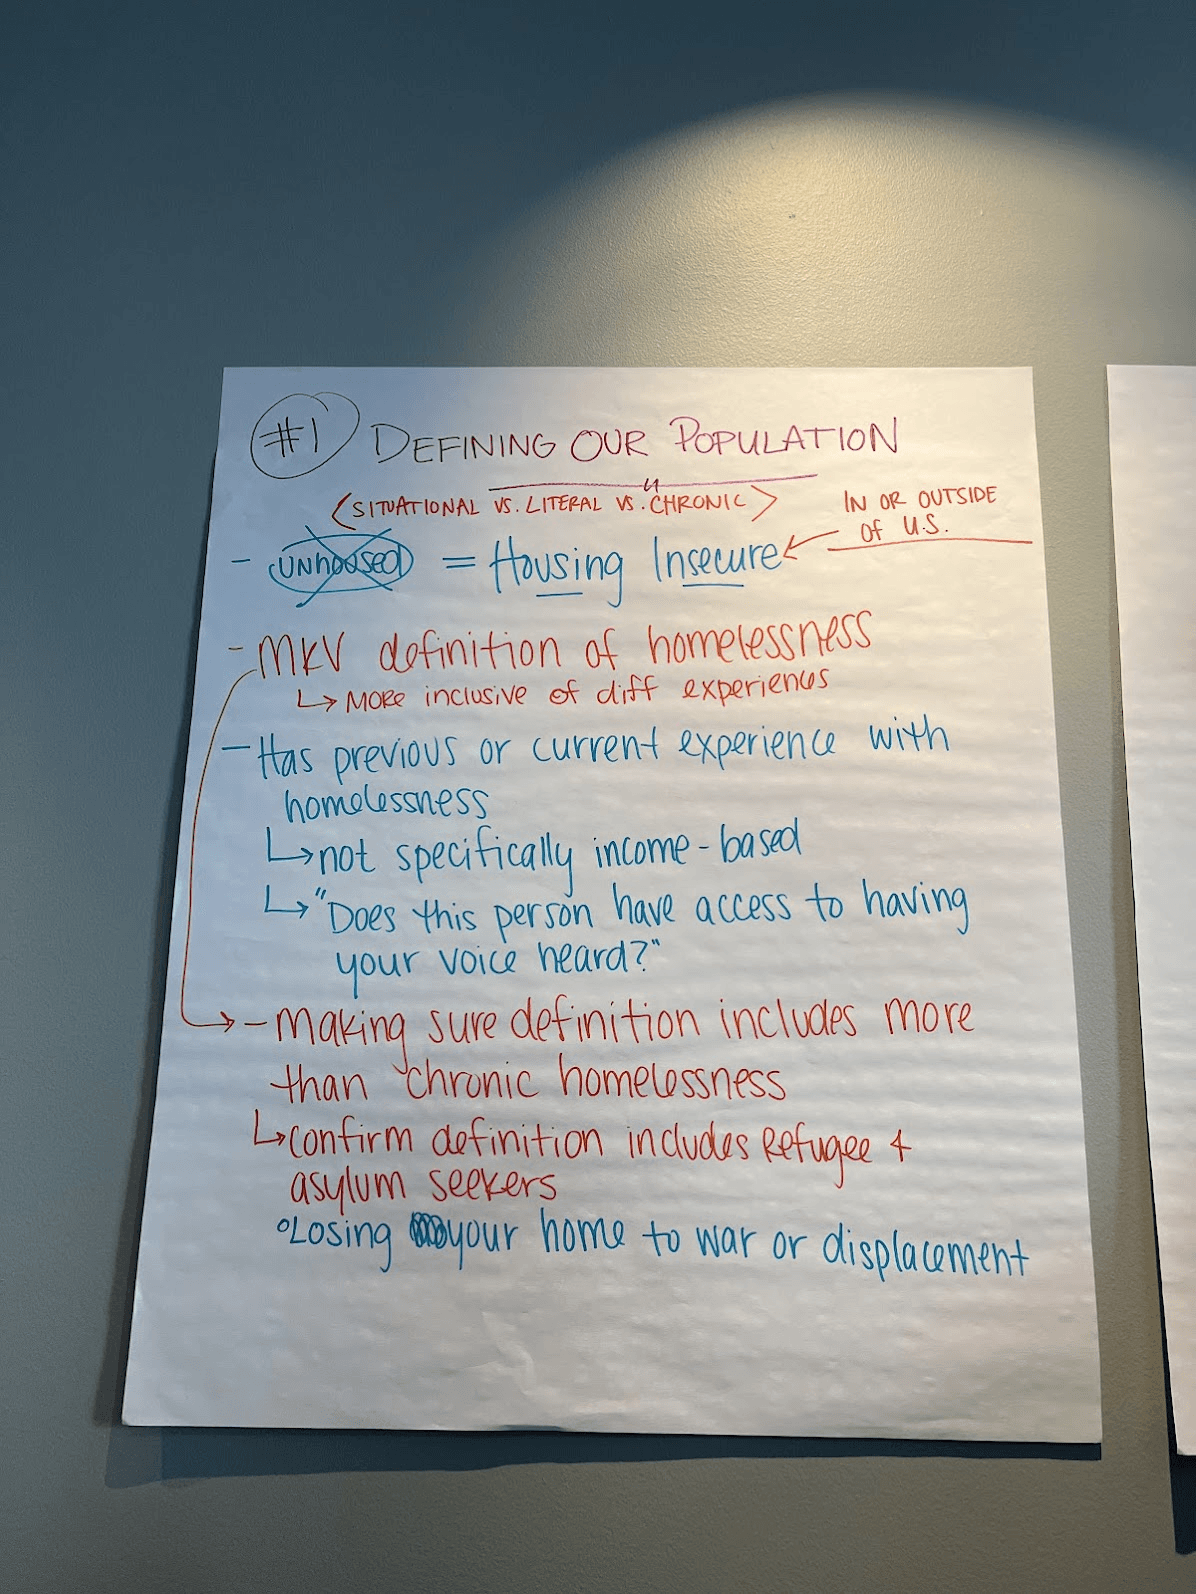 #1 DEFINING OUR POPULATION
<SITUATIONAL VS. LITERAL VS. CHRONIC>
IN OR OUTSIDE
of U.S.
- UNHOUSED = HOUSING INSECURE
- MKV definition of homelessness
↳ MORE inclusive of diff experiences
- Has previous or current experience with
homelessness
↳ not specifically income-based
↳ "Does this person have access to having
your voice heard?"
→ - Making sure definition includes more
than chronic homelessness
↳ confirm definition includes Refugee &
asylum seekers
° Losing your home to war or displacement